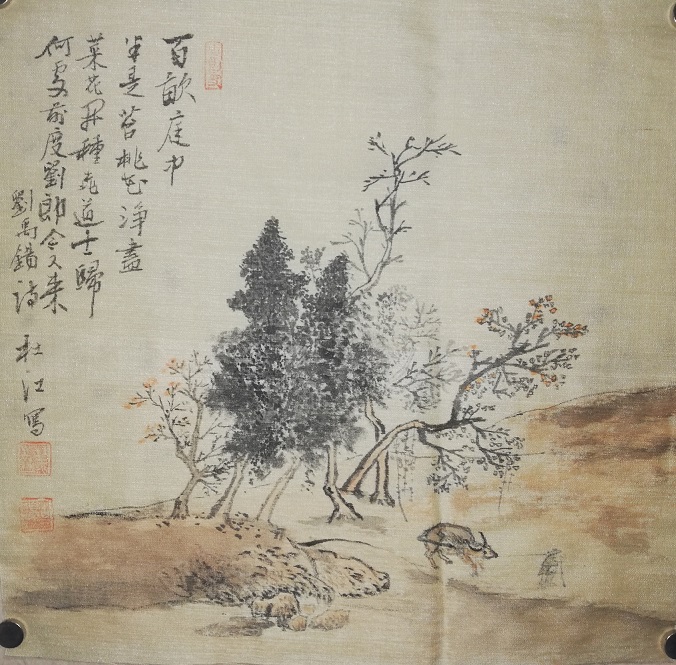 百畝庭中
半是苔桃花淨盡
菜花開種桃道士歸
何處前度劉郎今又来
劉禹錫詩 杜江寫